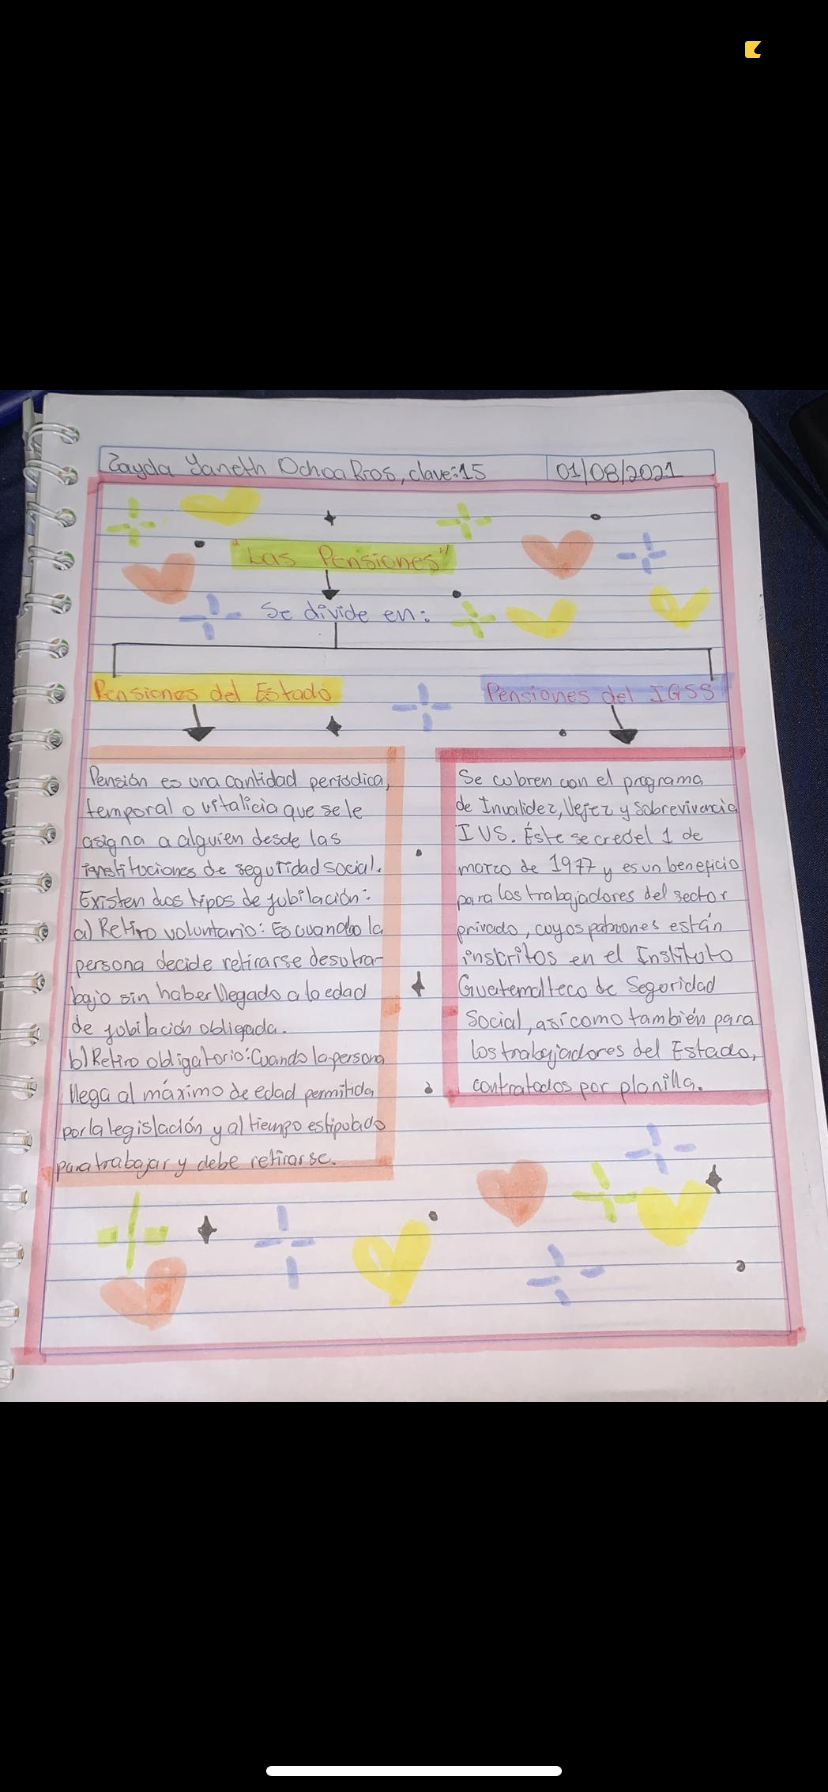 Zayda Yaneth Ochoa Rros, clave:15
01/08/2021
"Las Pensiones"
Se divide en:
Pensiones del Estado
Pensión es una cantidad periódica,
temporal o vitalicia que se le
asigna a alguien desde las
instituciones de seguridad social.
Existen dos tipos de jubilación:
a) Retiro voluntario: Es cuando la
persona decide retirarse de su tra-
bajo sin haber llegado a la edad
de jubilación obligada.
b) Retiro obligatorio: Cuando la persona
llega al máximo de edad permitida
por la legislación y al tiempo estipulado
para trabajar y debe retirarse.
Pensiones del IGSS
Se cubren con el programa
de Invalidez, Vejez y Sobrevivencia
IVS. Éste se creó el 1 de
marzo de 1977 y es un beneficio
para los trabajadores del sector
privado, cuyos patrones están
inscritos en el Instituto
Guatemalteco de Seguridad
Social, así como también para
los trabajadores del Estado,
contratados por planilla.